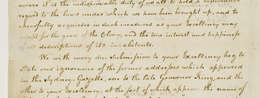 aware it is the indispensable duty of us all to hold a reverential
regard to the laws under which we have been brought up, and to
chearfully acquiesce in such measures as your Excellency may
adopt for the good of the Colony, and the true interest and happiness
of all descriptions of its inhabitants.
We with every due submission to your Excellency beg to
State our ignorance of the former addresses which appeared
in the Sydney Gazette, one to the late Governor King, and the
other to your Excellency, at the foot of which appears the name of